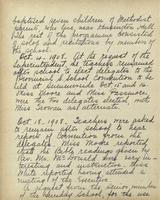 baptized seven children of Methodist
parents, who live near Kensington Hall.
The rest of the programme consisted
of solos and recitations by members of
the school.
Oct. 4, 1908. At the request of the
Superintendent the teachers remained
after school to elect delegates to the
Provincial S. School Convention to be
held at Oct. 15 and 16.
Miss Moore and Miss
were the two delegates elected, with
Miss as alternate.
Oct. 18, 1908. Teachers were asked
to remain after school to hear
reports of Convention from the
delegates. Miss Moore reported
that the Bible readings given by
Rev. Mr. were very
and instructive. Miss
White reported having attended a
meeting by the
A request from the senior members
of the Sunday school, for the use